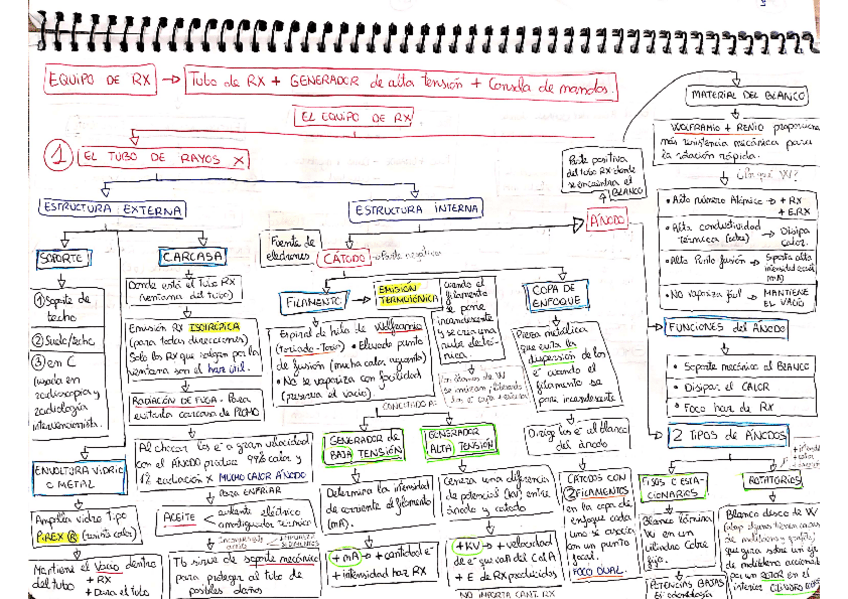 EQUIPO DE RX → Tubo de RX + GENERADOR de alta tensión + Consola de mandos.
EL EQUIPO DE RX
1 EL TUBO DE RAYOS X
ESTRUCTURA EXTERNA
SOPORTE
① Soporte de
techo
② Suelo/techo
③ en C
(usado en
radioscopia y
radiología
intervencionista.
ENVOLTURA VIDRIO
O METAL
Ampolla vidrio tipo
PIREX ® (resiste calor)
Mantiene el vacío dentro
del tubo + RX
+ Dura el tubo
CARCASA
Donde está el tubo RX
(ventana del tubo)
Emisión RX ISOTRÓPICA
(para todas direcciones)
Solo los RX que salgan por la
ventana son el haz útil.
RADIACIÓN DE FUGA. Para
evitarla carcasa de PLOMO
Al chocar los e⁻ a gran velocidad
con el ÁNODO produce 99% calor y
1% radiación x MUCHO CALOR ÁNODO
PARA ENFRIAR
ACEITE
aislante eléctrico
amortiguador térmico
Tb sirve de soporte mecánico
para proteger al tubo de
posibles daños
ESTRUCTURA INTERNA
Fuente de
electrones
CÁTODO → Parte negativa
FILAMENTO → EMISIÓN
TERMOIÓNICA
cuando el
filamento
se pone
incandescente
y se crea una
nube electró-
nica.
Espiral de hilo de Wolframio
(Toriado-Torio) • Elevado punto
de fusión (mucho calor aguanta)
• No se vaporiza con facilidad
(preserva el vacío).
CONECTADO A:
GENERADOR DE
BAJA TENSIÓN
Determina la intensidad
de corriente al filamento
(mA).
+ mA → + cantidad e⁻
+ intensidad haz RX
GENERADOR
ALTA TENSIÓN
Genera una diferencia
de potencial (kV) entre
ánodo y cátodo
+ KV → + velocidad
de e⁻ que van del C al A
+ E de RX producidos
NO IMPORTA CANT. RX
COPA DE
ENFOQUE
Pieza metálica
que evita la
dispersión de los
e⁻ cuando el
filamento se
pone incandescente
Dirige los e⁻ al blanco
del ánodo
CÁTODOS CON
2 FILAMENTOS
en la copa de
enfoque cada
uno se asocia
con un punto
focal.
FOCO DUAL.
Parte positiva
del tubo RX donde
se encuentra el
BLANCO
ÁNODO
MATERIAL DEL BLANCO
WOLFRAMIO + RENIO proporciona
más resistencia mecánica para
la rotación rápida.
¿Por qué W?
• Alto número Atómico → + RX
+ E.RX
• Alta conductividad
térmica → Disipa
calor.
• Alto Punto fusión → Soporta alta
intensidad
(mA)
• NO vaporiza fácil → MANTIENE
EL VACÍO
FUNCIONES del ÁNODO
• Soporte mecánico al BLANCO
• Disipar el CALOR
• Foco haz de RX
2 TIPOS DE ÁNODOS
FIJOS O ESTA-
CIONARIOS
Blanco lámina
W en un
cilindro cobre
fijo.
POTENCIAS BAJAS
ROTATORIOS
Blanco disco de W
que gira sobre un eje
de molibdeno accionado
por un ROTOR en el
interior